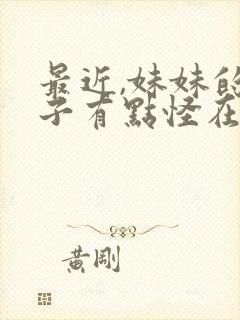 最近,妹妹的
子有點怪在
黃剛